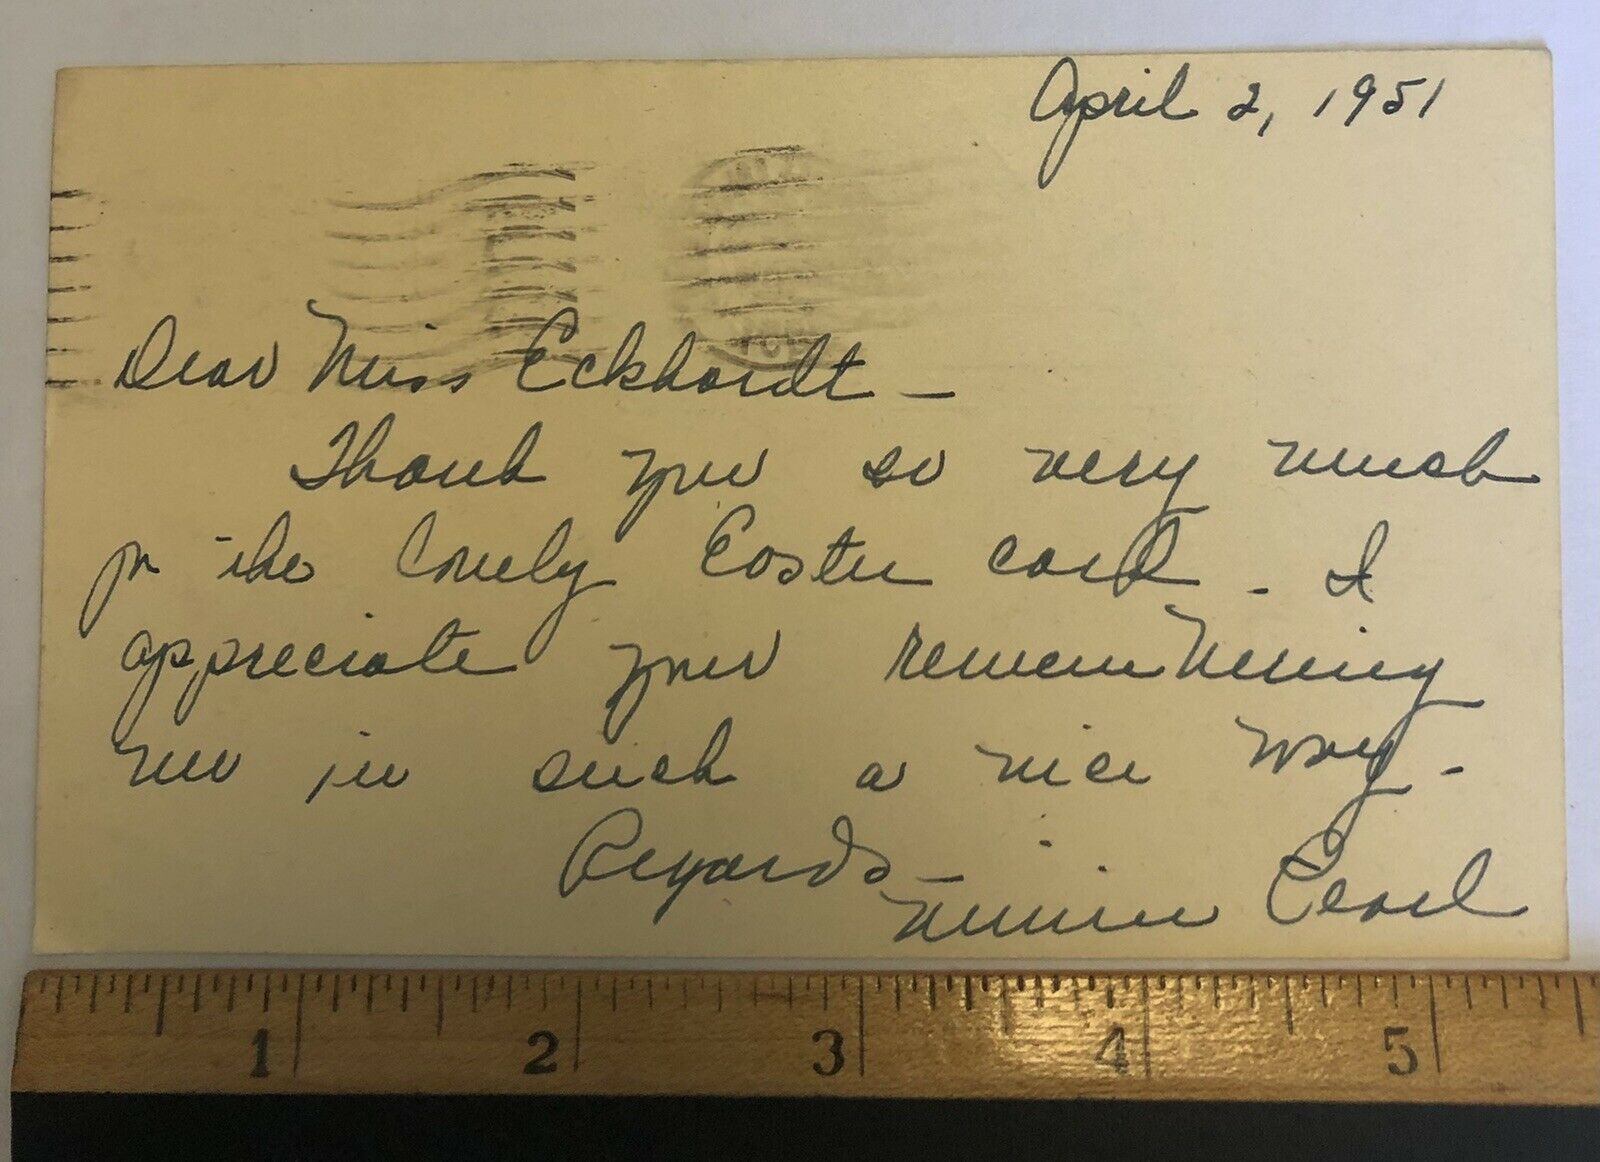 April 2, 1951
Dear Miss Eckhardt –
Thank you so very much
for the lovely Easter card – I
appreciate your remembering
me in such a nice way –
Regards –
Minnie Pearl
1 2 3 4 5